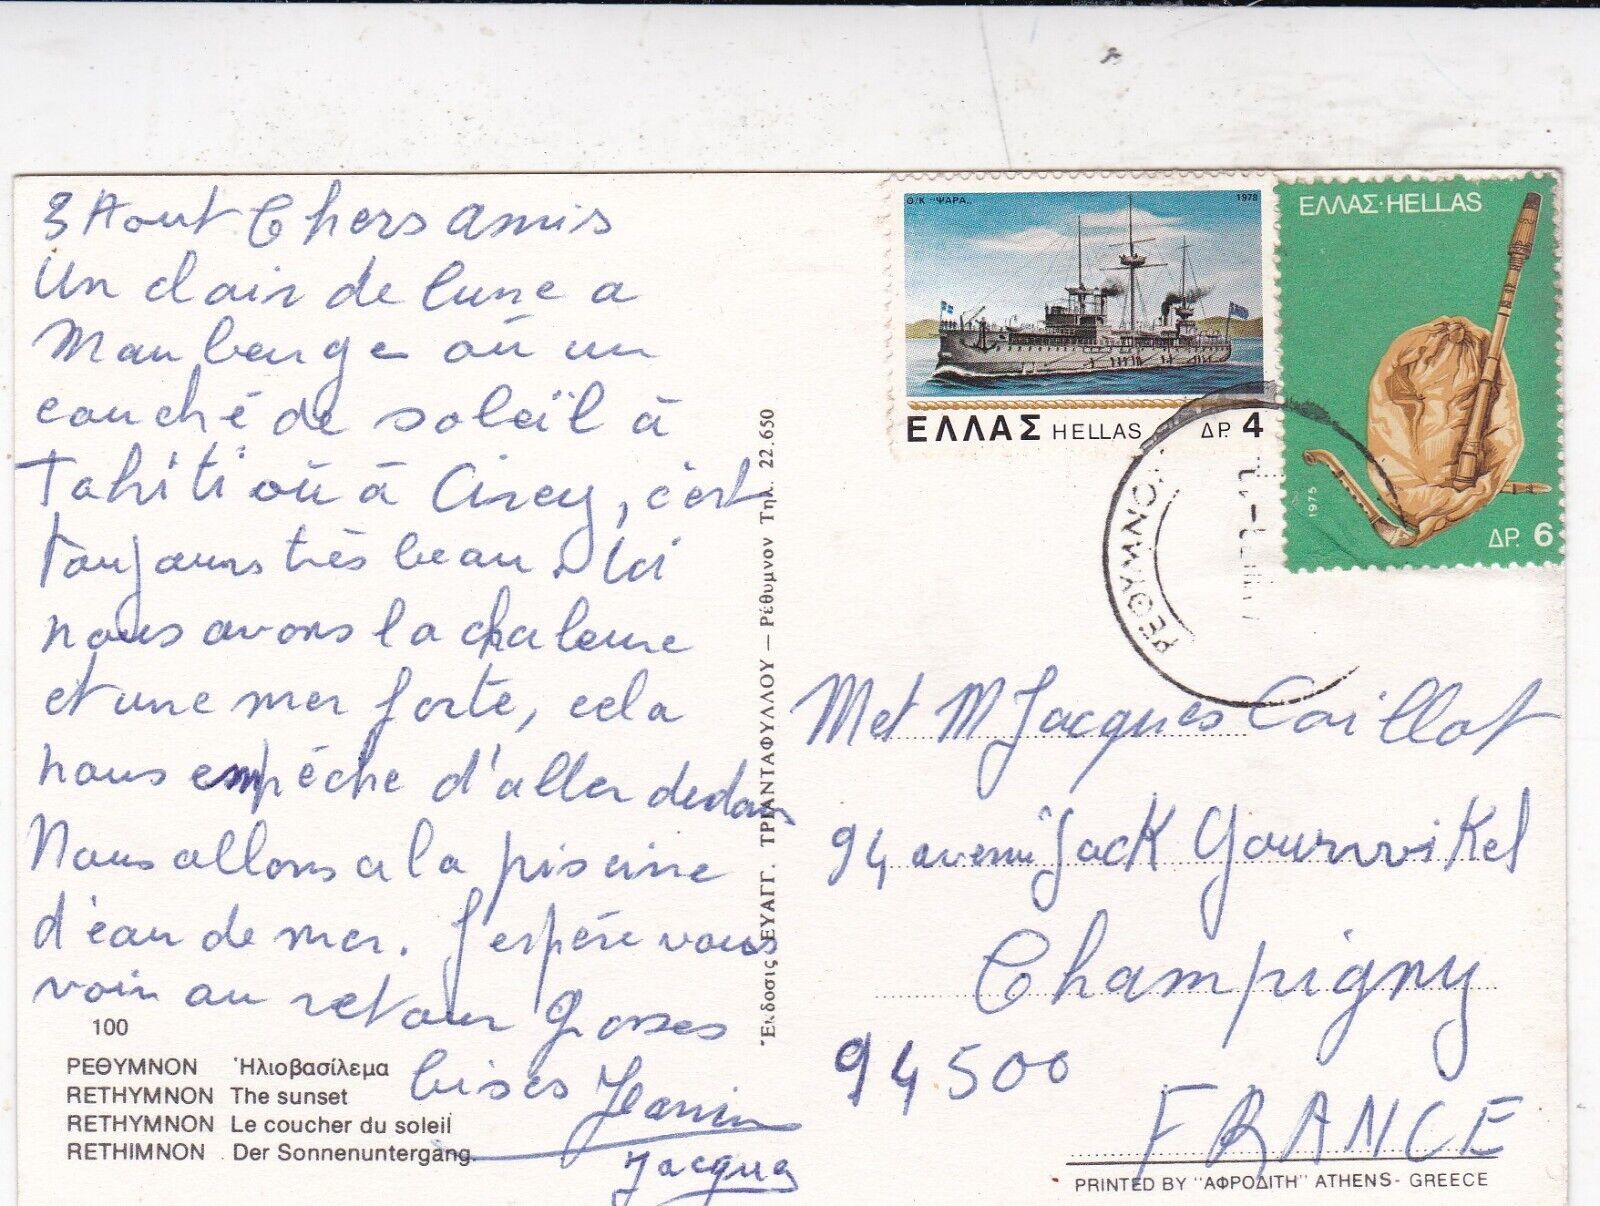 3 Aout Chers amis
Un clair de lune a
Maubeuge où un
couché de soleil à
Tahiti où à Cirey, c'est
toujours très beau. Ici
nous avons la chaleure
et une mer forte, cela
nous empéche d'aller dedans
Nous allons a la piscine
d'eau de mer. J'espére vous
voir au retour Grosses
bises Jeanin
Jacques
100
ΡΕΘΥΜΝΟΝ Ἡλιοβασίλεμα
RETHYMNON The sunset
RETHYMNON Le coucher du soleil
RETHIMNON Der Sonnenuntergang.
Ἔκδοσις ΕΥΑΓΓ. ΤΡΙΑΝΤΑΦΥΛΛΟΥ — Ρέθυμνον Τηλ. 22.650
Θ/Κ "ΨΑΡΑ„ 1978
ΕΛΛΑΣ HELLAS ΔΡ. 4
ΕΛΛΑΣ·HELLAS
1975
ΔΡ. 6
ΡΕΘΥΜΝΟ
M et M Jacques Caillot
94 avenu Jack Gourvvikel
Champigny
94500
FRANCE
PRINTED BY "ΑΦΡΟΔΙΤΗ" ATHENS - GREECE